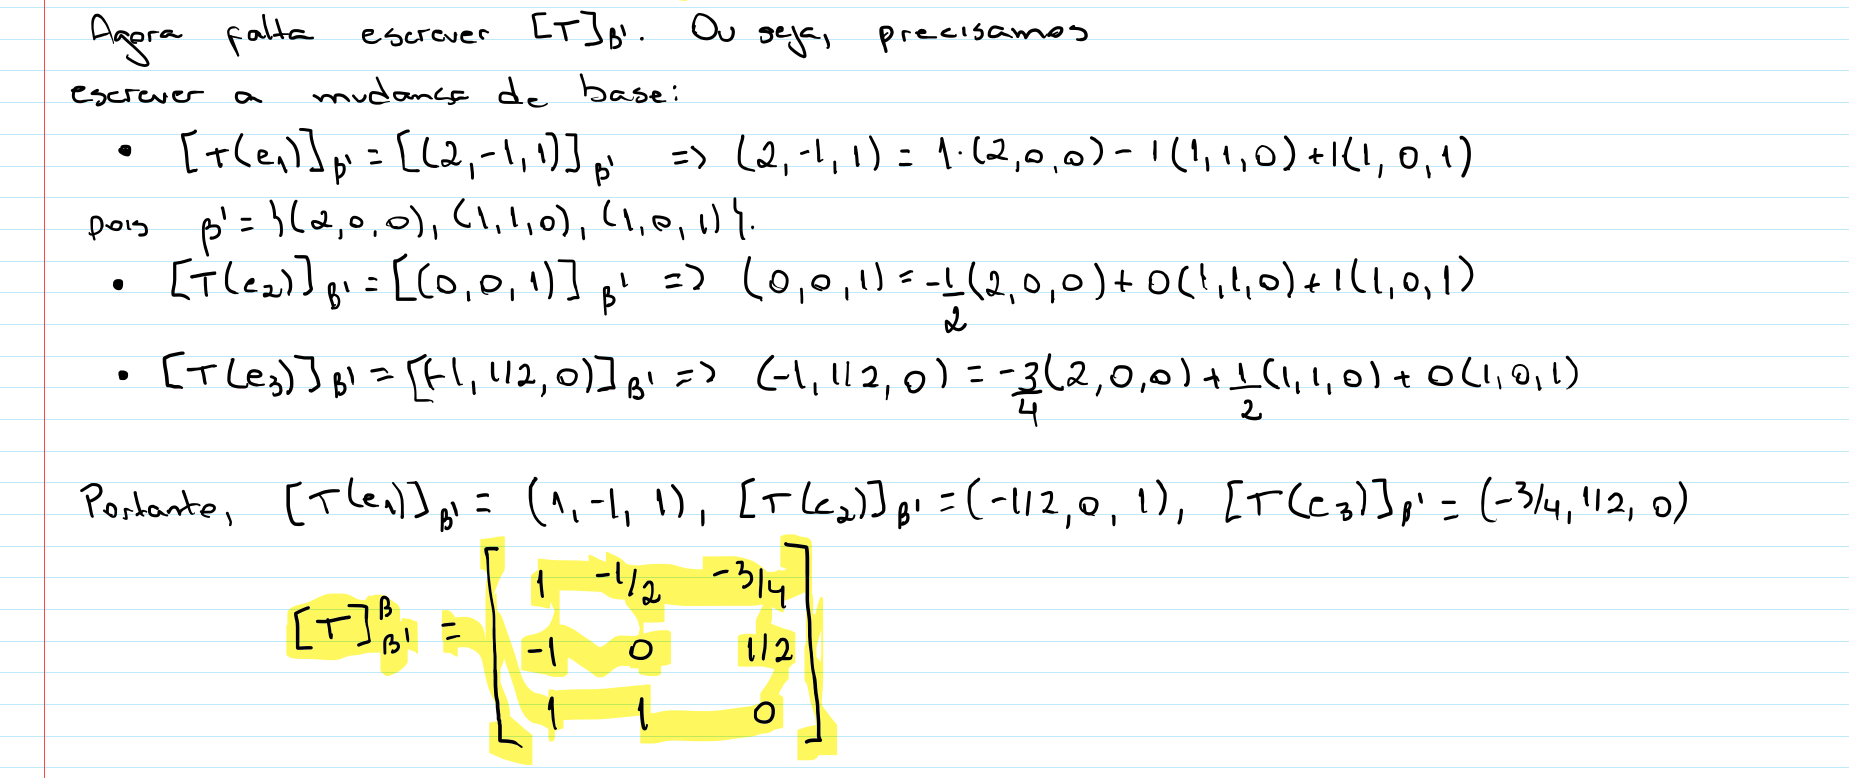 Agora falta escrever [T]β'. Ou seja, precisamos
escrever a mudança de base:
• [T(e₁)]β' = [(2,-1,1)]β' => (2,-1,1) = 1·(2,0,0) - 1(1,1,0) + 1(1,0,1)
pois β' = {(2,0,0), (1,1,0), (1,0,1)}.
• [T(e₂)]β' = [(0,0,1)]β' => (0,0,1) = -1/2(2,0,0) + 0(1,1,0) + 1(1,0,1)
• [T(e₃)]β' = [(-1,1/2,0)]β' => (-1,1/2,0) = -3/4(2,0,0) + 1/2(1,1,0) + 0(1,0,1)
Portanto, [T(e₁)]β' = (1,-1,1), [T(e₂)]β' = (-1/2,0,1), [T(e₃)]β' = (-3/4,1/2,0)
1 -1/2 -3/4
[T]^β_β' = -1 0 1/2
1 1 0